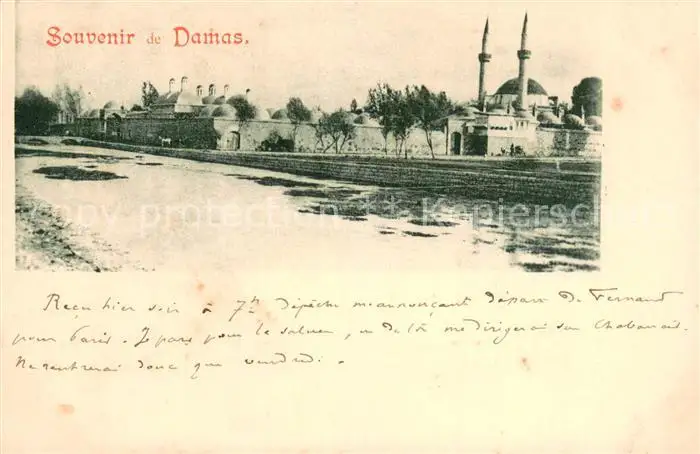 Souvenir de Damas.
Reçu hier soir à 7h dépêche m'annonçant départ de Fernand
pour Paris. Je pars pour le saluer, et de là me dirigerai sur Chabanais.
Ne rentrerai donc que vendredi.
copy protection Kopierschutz